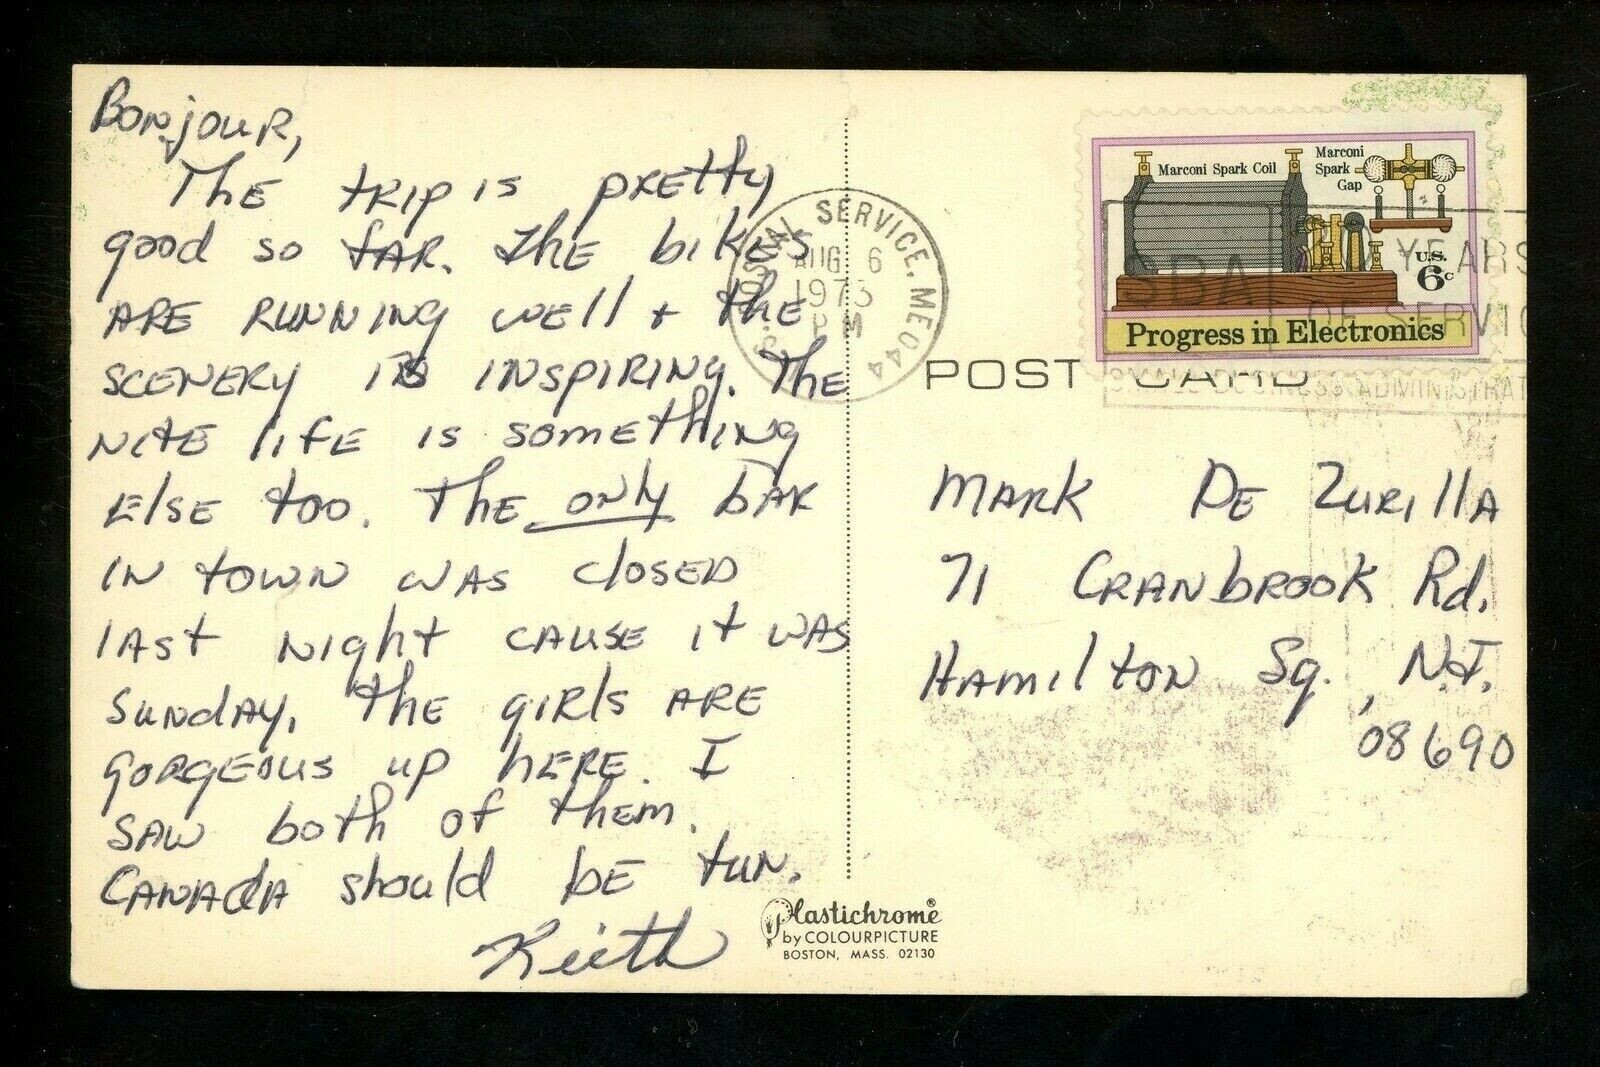 Bonjour,
The trip is pretty
good so far. The bikes
are running well + the
scenery is inspiring. The
nite life is something
else too. The only bar
in town was closed
last night cause it was
Sunday. The girls are
gorgeous up here. I
saw both of them.
Canada should be fun.
Keith
U.S. POSTAL SERVICE, ME 044
AUG 6
1973
PM
Marconi Spark Coil
Marconi
Spark
Gap
U.S.
6c
Progress in Electronics
SBA
YEARS
OF SERVIC
SMALL BUSINESS ADMINISTRAT
POST CARD
Mark De Zurilla
71 Cranbrook Rd.
Hamilton Sq., N.J.
08690
Plastichrome®
by COLOURPICTURE
BOSTON, MASS. 02130